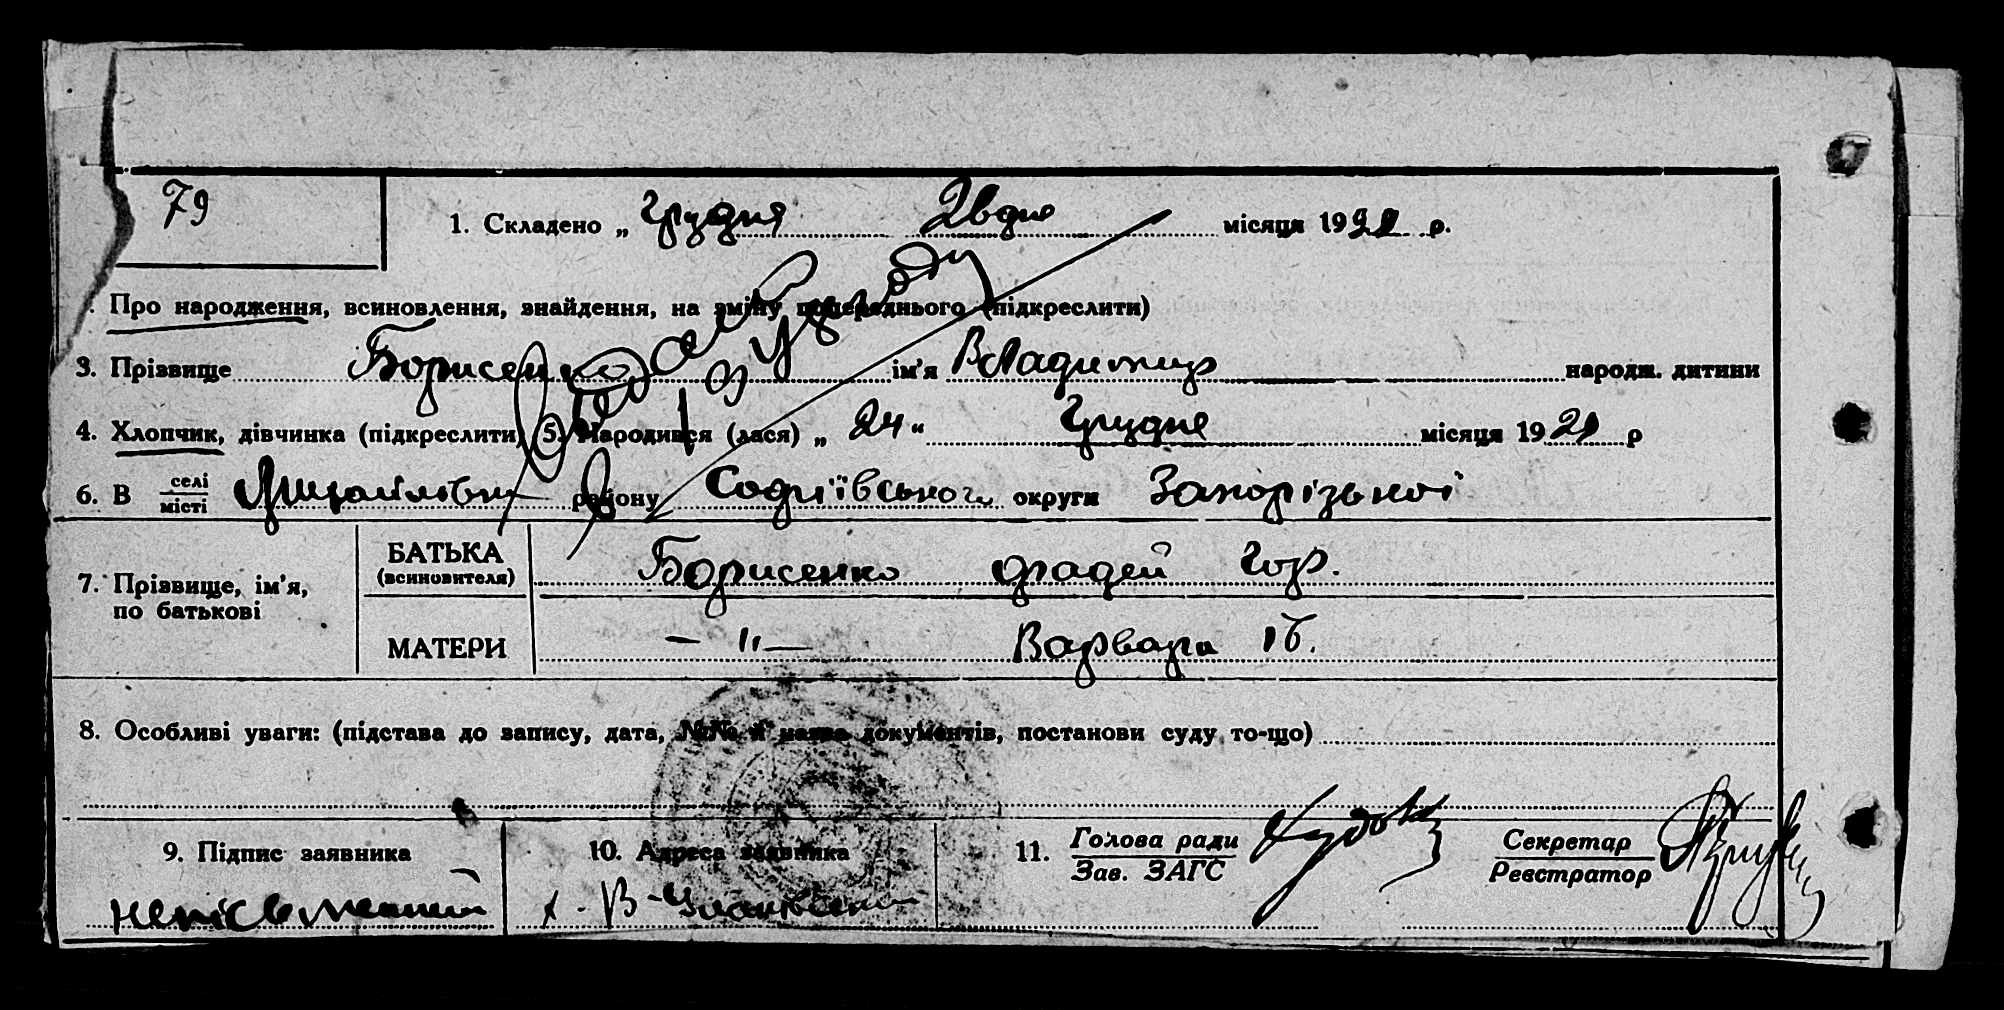 79
1. Складено „ Грудня 26 дня місяця 192 р.
Про народження, всиновлення, знайдення, на зміну попереднього (підкреслити)
3. Прізвище Борисенко ім'я Владимир народж. дитини
4. Хлопчик, дівчинка (підкреслити) 5. Народився (лася) „ 24 “ Грудня місяця 19 р
6. В селі місті Михайлівки району Софіївського округи Запорізької
БАТЬКА Борисенко Фадей Гор.
(всиновителя)
7. Прізвище, ім'я, по батькові
МАТЕРИ — " — Варвара Іб.
8. Особливі уваги: (підстава до запису, дата, №№ й назва документів, постанови суду то-що)
9. Підпис заявника 10. Адреса заявника 11. Голова ради Секретар
Зав. ЗАГС Реєстратор
неписьменний х.